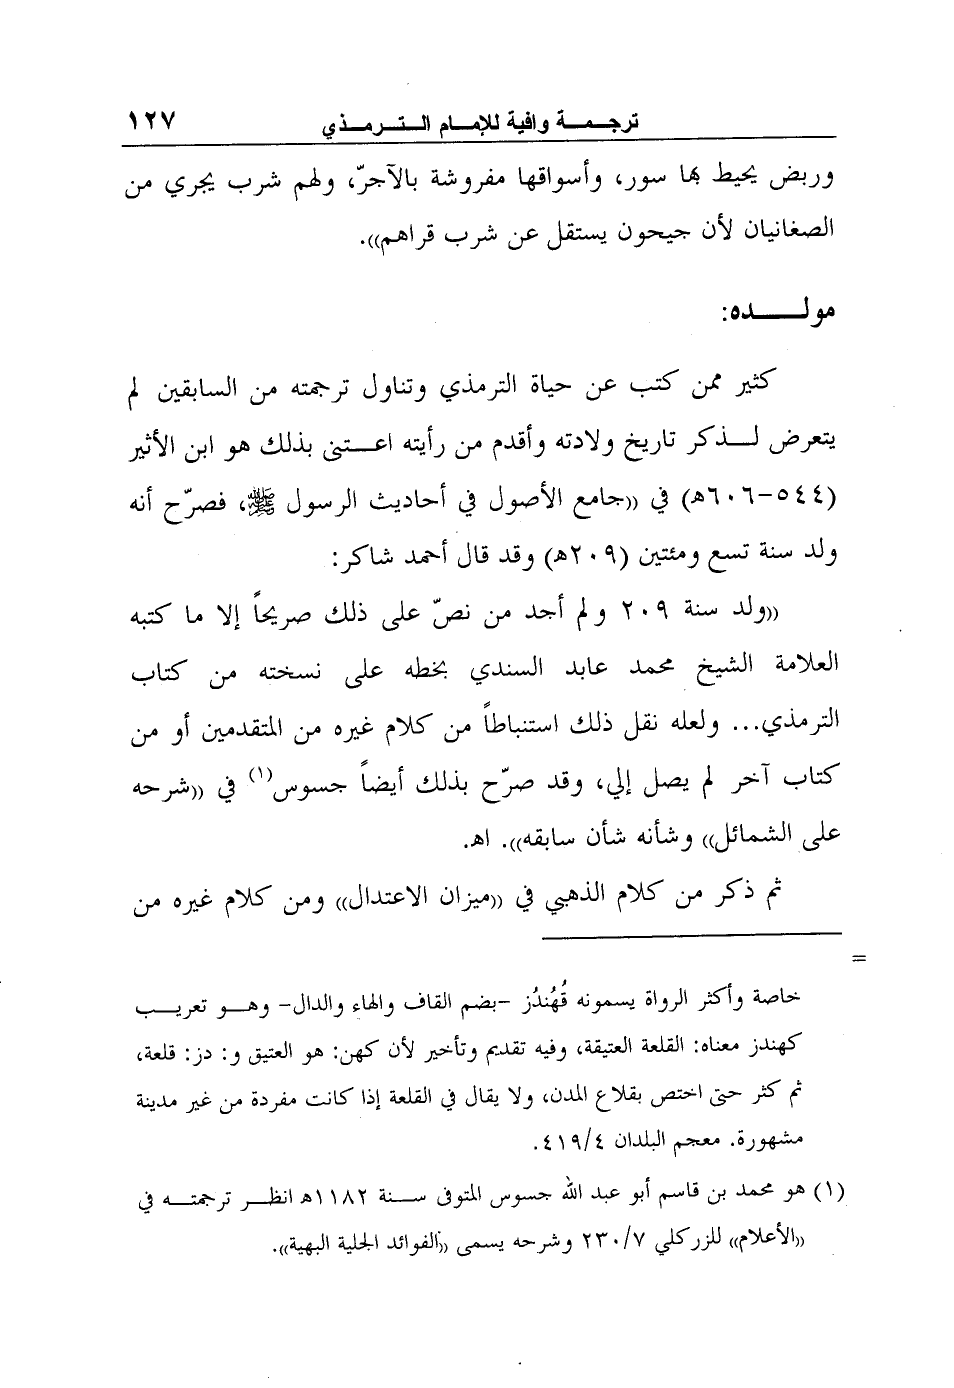 ترجمة وافية للإمام الترمذي ١٢٧
وربض يحيط بها سور، وأسواقها مفروشة بالآجرّ، ولهم شرب يجري من
الصغانيان لأن جيحون يستقل عن شرب قراهم».
مولده:
كثير ممن كتب عن حياة الترمذي وتناول ترجمته من السابقين لم
يتعرض لذكر تاريخ ولادته وأقدم من رأيته اعتنى بذلك هو ابن الأثير
(٥٤٤-٦٠٦هـ) في «جامع الأصول في أحاديث الرسول ﷺ، فصرّح أنه
ولد سنة تسع ومئتين (٢٠٩هـ) وقد قال أحمد شاكر:
«ولد سنة ٢٠٩ ولم أجد من نصّ على ذلك صريحاً إلا ما كتبه
العلامة الشيخ محمد عابد السندي بخطه على نسخته من كتاب
الترمذي... ولعله نقل ذلك استنباطاً من كلام غيره من المتقدمين أو من
كتاب آخر لم يصل إلي، وقد صرّح بذلك أيضاً جسوس(١) في «شرحه
على الشمائل» وشأنه شأن سابقه». اهـ.
ثم ذكر من كلام الذهبي في «ميزان الاعتدال» ومن كلام غيره من
=
خاصة وأكثر الرواة يسمونه قُهُندُز -بضم القاف والهاء والدال- وهو تعريب
كهندز معناه: القلعة العتيقة، وفيه تقديم وتأخير لأن كهن: هو العتيق و: دز: قلعة،
ثم كثر حتى اختص بقلاع المدن، ولا يقال في القلعة إذا كانت مفردة من غير مدينة
مشهورة. معجم البلدان ٤١٩/٤.
(١) هو محمد بن قاسم أبو عبد الله جسوس المتوفى سنة ١١٨٢هـ انظر ترجمته في
«الأعلام» للزركلي ٢٣٠/٧ وشرحه يسمى «الفوائد الجلية البهية».